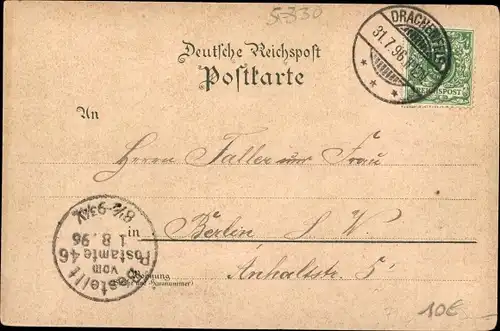 5330
Deutsche Reichspost
Postkarte
DRACHENFELS
31.7.96
REICHSPOST
An
Herrn Faller und Frau
in Berlin S. W.
Anhaltstr. 5
Wohnung
(Straße und Hausnummer)
Bestellt
vom
Postamte 46
1.8.96
8½-9¾V.
10€